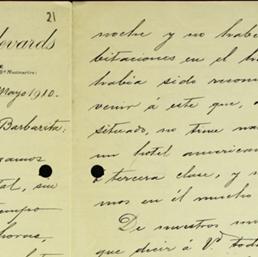 21
levards
E
Bd Montmartre
Mayo 1910.
Barbarita:
gamos
tal, sin
tiempo
horas,
noche y no habia
bitaciones en el h
habia sido recom
venir á este que, a
situado, no tiene na
un hotel american
á tercera clase, y n
mos en él mucho
De nuestros
que decir á Vd. tod